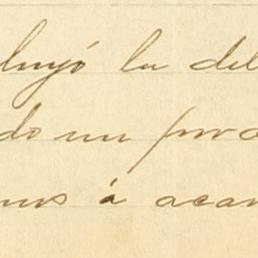 luyó la del
do un pro
mos á acan